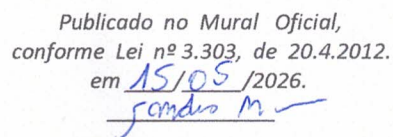 Publicado no Mural Oficial,
conforme Lei nº 3.303, de 20.4.2012.
em 15/05/2026.